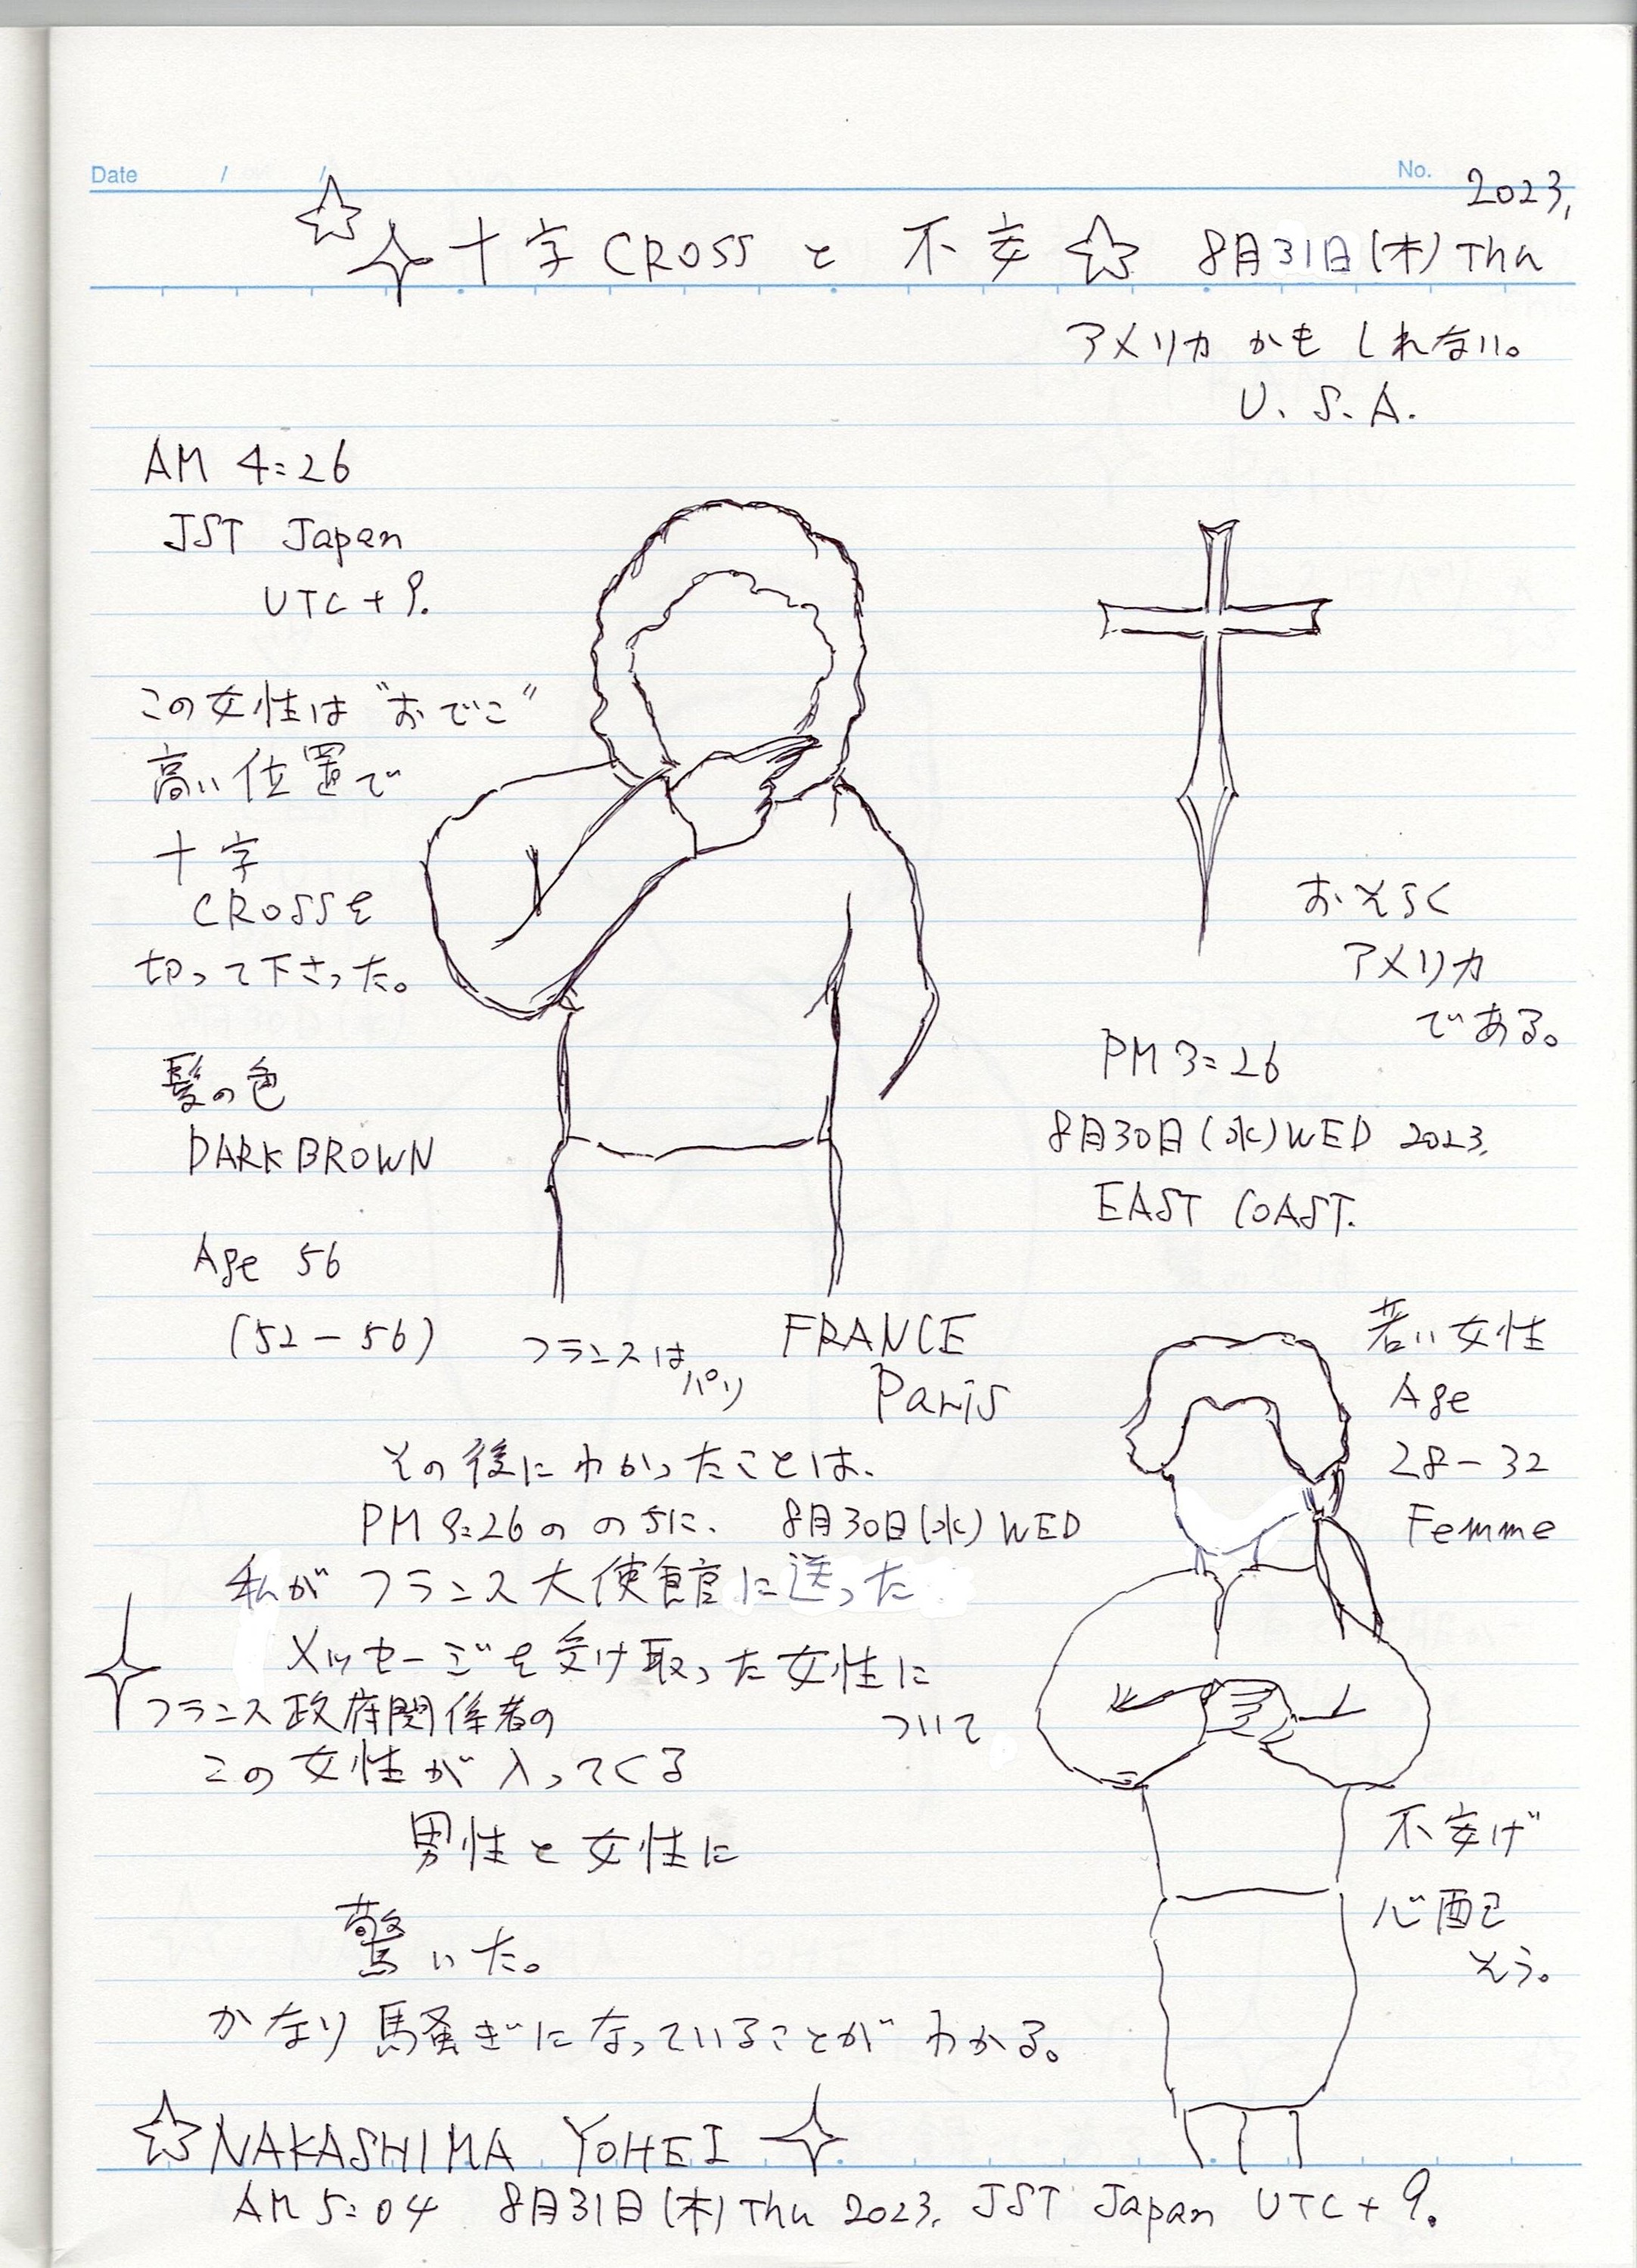 Date / /
No.
2023,
十字 CROSS と 不安 8月31日(木) Thu
アメリカ かも しれない。
U. S. A.
AM 4:26
JST Japan
UTC + 9.
この女性は"おでこ"
高い位置で
十字
CROSSを
切って下さった。
髪の色
DARK BROWN
Age 56
(52 - 56)
おそらく
アメリカ
である。
PM 3:26
8月30日(水) WED 2023.
EAST COAST.
フランスは パリ
FRANCE
Paris
若い女性
Age
28 - 32
Femme
その後にわかったことは、
PM 9:26 の のちに、 8月30日(水) WED
私が フランス大使館に送った
メッセージを受け取った女性に
ついて。
フランス政府関係者の
この女性が入ってくる
男性と女性に
驚いた。
かなり馬騒ぎになっていることが わかる。
不安げ
心配
そう。
NAKASHIMA YOHEI
AM 5:04 8月31日(木) Thu 2023. JST Japan UTC + 9.